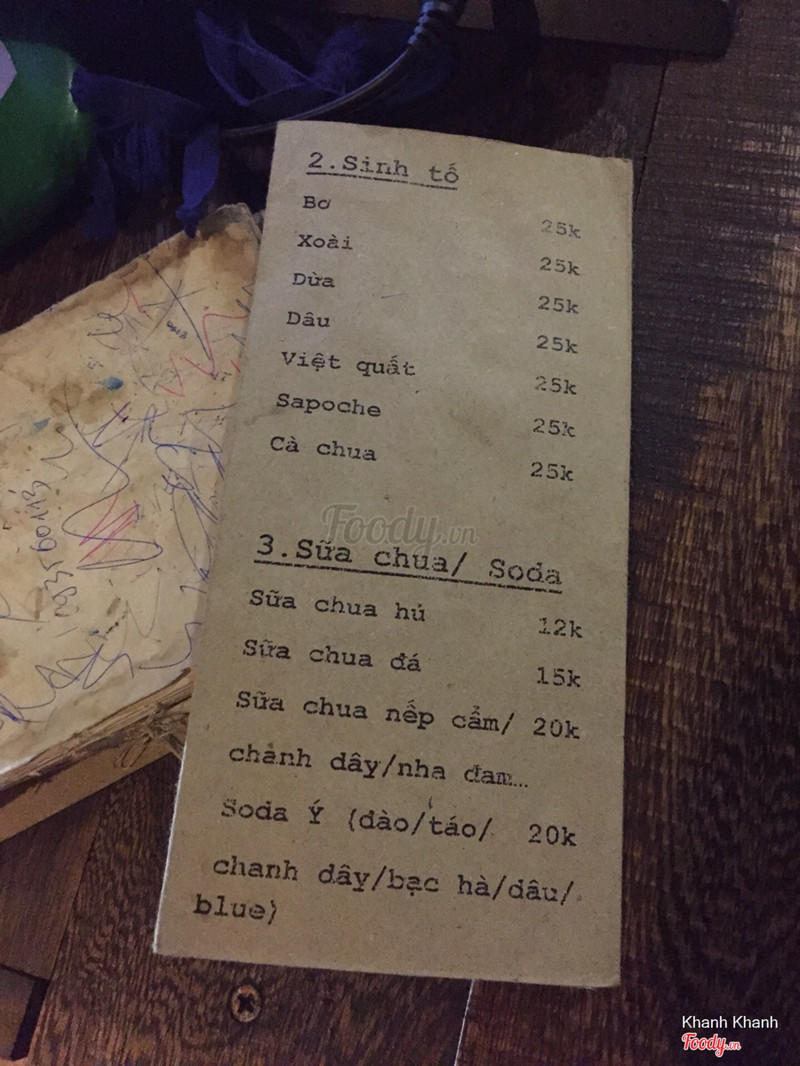 2.Sinh tố
Bơ 25k
Xoài 25k
Dừa 25k
Dâu 25k
Việt quất 25k
Sapoche 25k
Cà chua 25k
3.Sữa chua/ Soda
Sữa chua hủ 12k
Sữa chua đá 15k
Sữa chua nếp cẩm/ 20k
chanh dây/nha đam...
Soda Ý (đào/táo/ 20k
chanh dây/bạc hà/dâu/
blue)
Foody.vn
Khanh Khanh
Foody.vn